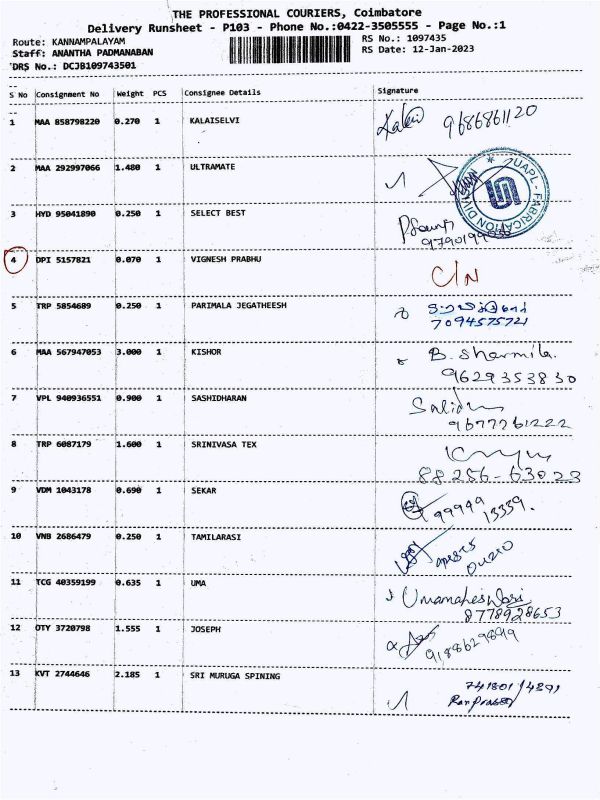 THE PROFESSIONAL COURIERS, Coimbatore
Delivery Runsheet - P103 - Phone No.:0422-3505555 - Page No.:1
Route: KANNAMPALAYAM RS No.: 1097435
Staff: ANANTHA PADMANABAN RS Date: 12-Jan-2023
DRS No.: DCJB109743501
S No Consignment No Weight PCS Consignee Details Signature
1 MAA 858798220 0.270 1 KALAISELVI 9686861120
2 MAA 292997066 1.480 1 ULTRAMATE
UAPL - FABRICATION DIVI
3 HYD 95041890 0.250 1 SELECT BEST
4 DPI 5157821 0.070 1 VIGNESH PRABHU C/N
5 TRP 5854689 0.250 1 PARIMALA JEGATHEESH
7094575721
6 MAA 567947053 3.000 1 KISHOR B. Sharmila.
9629353830
7 VPL 940936551 0.900 1 SASHIDHARAN
9677261222
8 TRP 6087179 1.600 1 SRINIVASA TEX
88256-63023
9 VDM 1043178 0.690 1 SEKAR 99999 13339.
10 VNB 2686479 0.250 1 TAMILARASI
11 TCG 40359199 0.635 1 UMA Umamaheswari
8778928653
12 OTY 3720798 1.555 1 JOSEPH 9188629899
13 KVT 2744646 2.185 1 SRI MURUGA SPINING